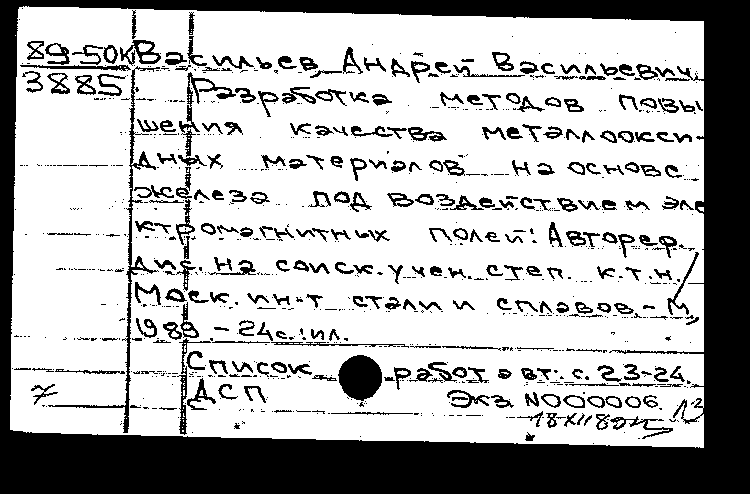 89-50К Васильев, Андрей Васильевич.
3885. Разработка методов повы
шения качества металлоокси-
дных материалов на основе
железа под воздействием эле
ктромагнитных полей: Автореф.
дис. на соиск. учен. степ. к.т.н. /
Моск. ин-т стали и сплавов. - М.,
1989. - 24с.: ил.
Список работ авт.: с. 23-24.
ДСП Экз. N000006.
18 XII 89